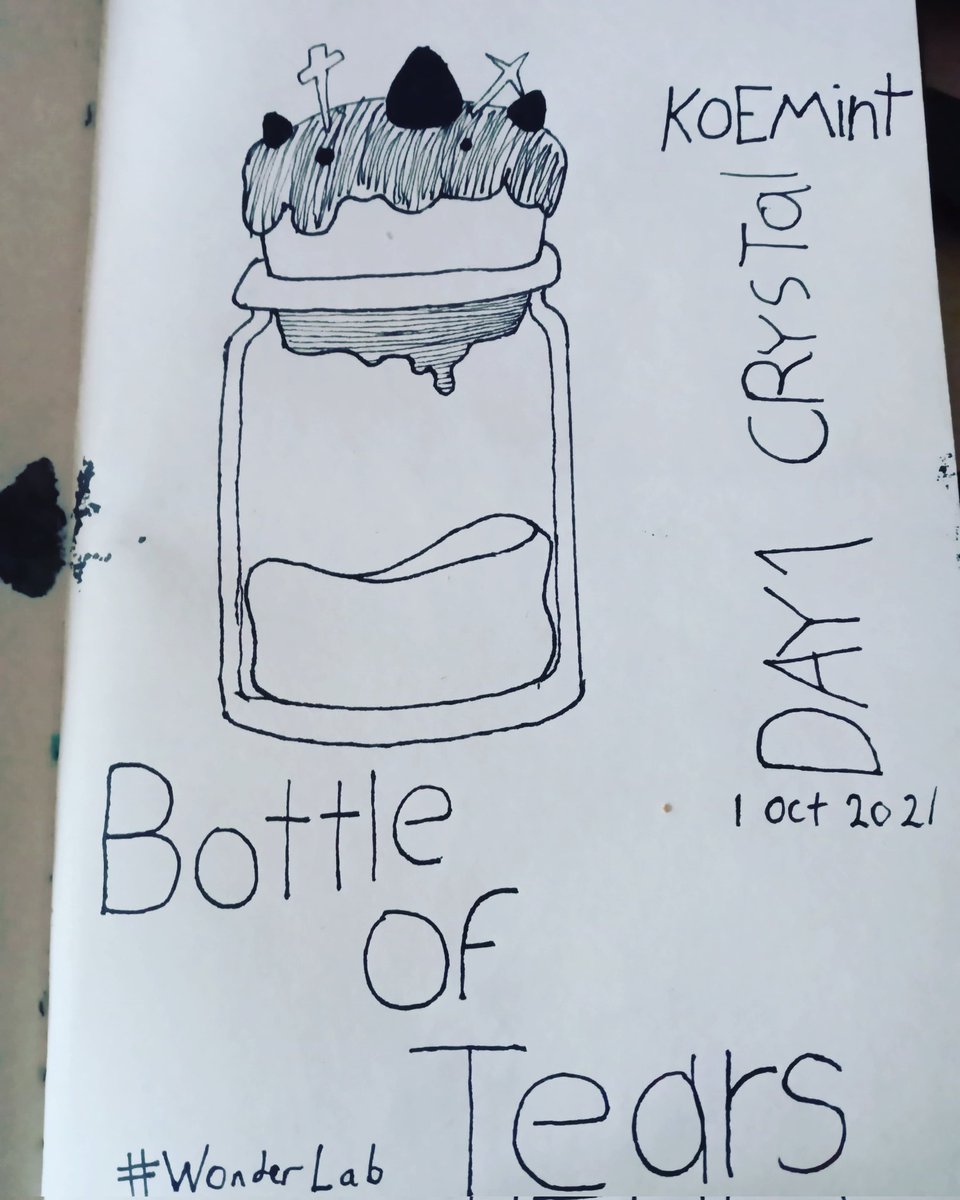 KOEMint
DAY 1 CRYSTall
1 Oct 2021
Bottle
Of
Tears
#WonderLab